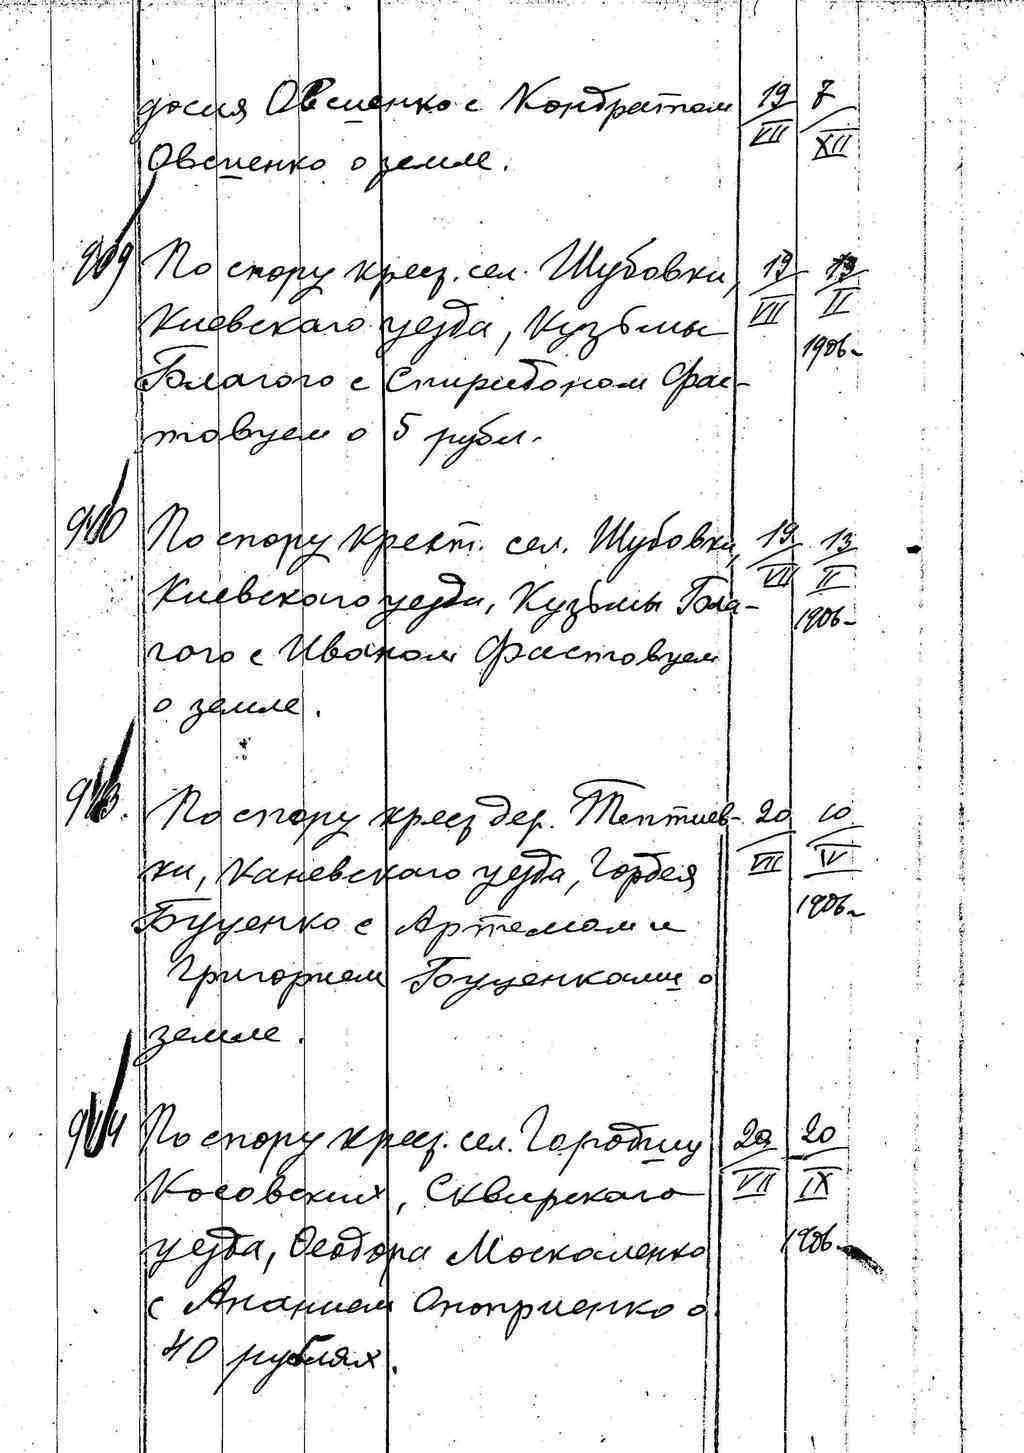 досия Овсиенко с Кондратом 19/VII 7/XII
Овсиенко о земле.
909 По спору крест. сел. Шубовки, 19/VII 13/II
Киевского уезда, Кузьмы 1906
Благого с Спиридоном Фас-
товцем о 5 рубл.
910 По спору крест. сел. Шубовки, 19/VII 13/II
Киевского уезда, Кузьмы Бла- 1906
гого с Иваном Фастовцем
о земле.
913. По спору крест дер. Тептиев- 20/VII 10/IV
ки, Каневского уезда, Гордея 1906
Буценко с Артемом и
Григорием Буценками о
земле.
914 По спору крест. сел. Городищ 20/VII 20/IX
Косовских, Сквирского
уезда, Феодора Москаленко 1906
с Ананием Оноприенко о
40 рублях.